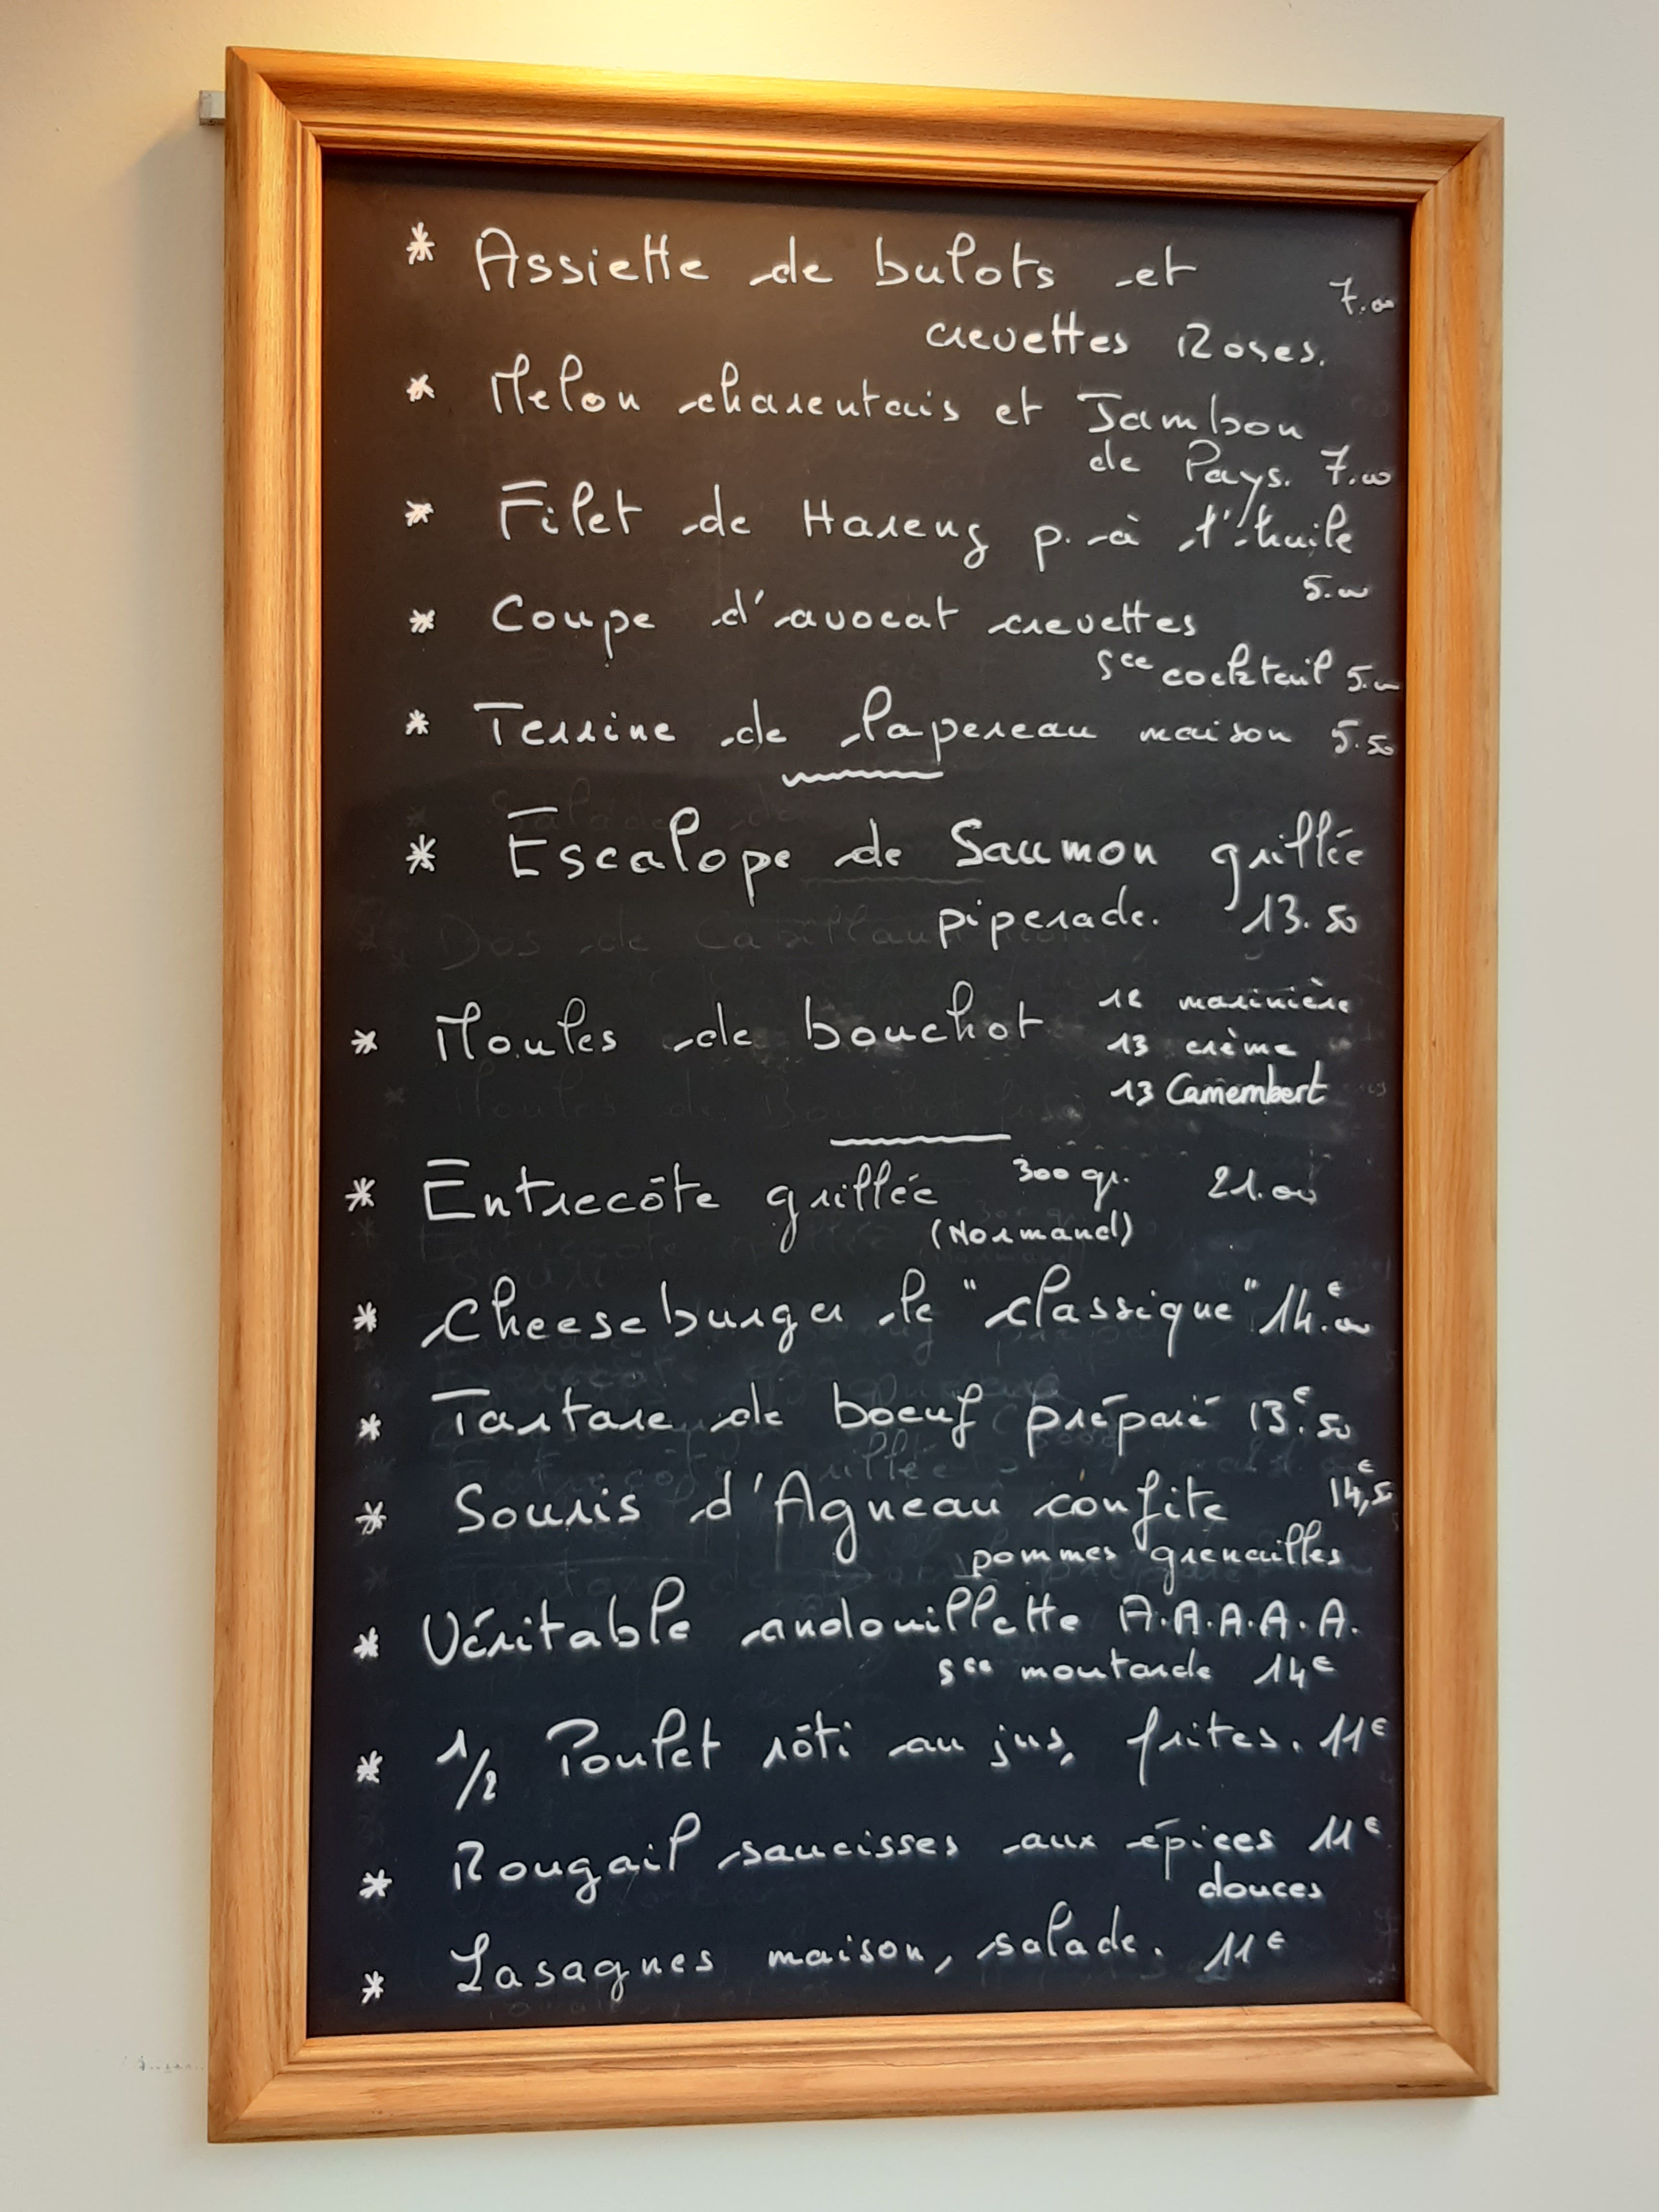 * Assiette de bulots et
7.00
crevettes Roses.
* Melon charentais et Jambon
de Pays. 7.00
* Filet de Hareng p. à l'huile
5.00
* Coupe d'avocat crevettes
Sce cocktail 5.00
* Terrine de lapereau maison 5.50
* Escalope de Saumon grillée
piperade. 13.50
* Moules de bouchot
12 marinière
13 crème
13 Camembert
* Entrecôte grillée 300 gr. 21.00
(Normand)
* Cheeseburger le "classique" 14€.00
* Tartare de boeuf préparé 13€.50
* Souris d'Agneau confite 14,50€
pommes grenailles
* Véritable andouillette A.A.A.A.A.
sce moutarde 14€
* 1/2 Poulet rôti au jus, frites. 11€
* Rougail saucisses aux épices 11€
douces
* Lasagnes maison, salade. 11€